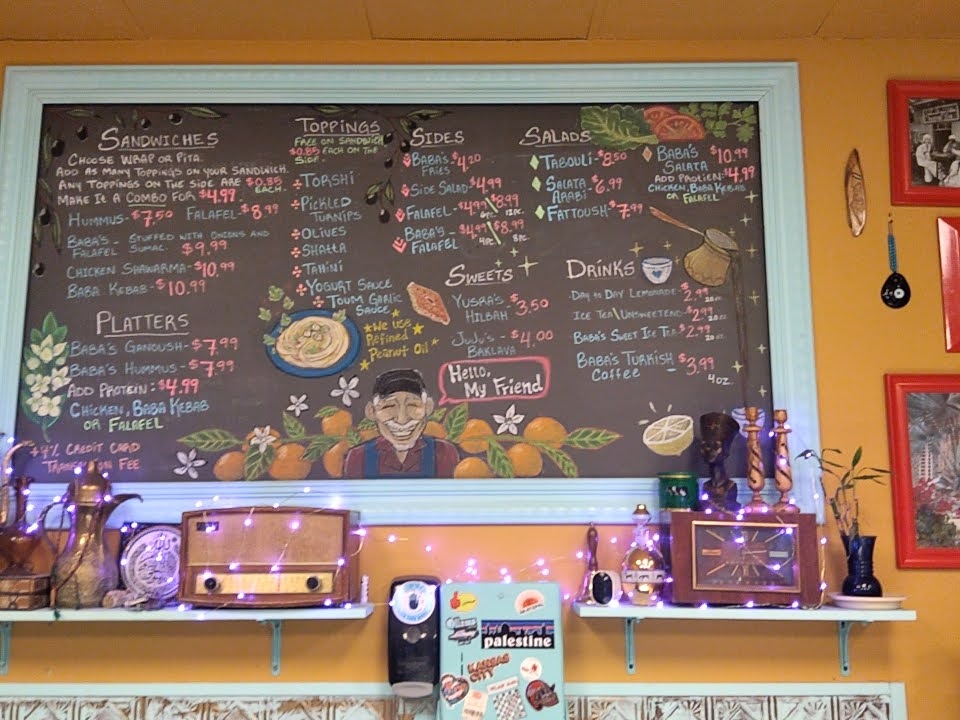 SANDWICHES
CHOOSE WRAP OR PITA.
ADD AS MANY TOPPINGS ON YOUR SANDWICH.
ANY TOPPINGS ON THE SIDE ARE $0.85 EACH.
MAKE IT A COMBO FOR $4.99.
HUMMUS- $7.50 FALAFEL- $8.99
BABA'S - STUFFED WITH ONIONS AND
FALAFEL SUMAC. $9.99
CHICKEN SHAWARMA- $10.99
BABA KEBAB- $10.99
PLATTERS
BABA'S GANOUSH- $7.99
BABA'S HUMMUS- $7.99
ADD PROTEIN: $4.99
CHICKEN, BABA KEBAB
OR FALAFEL
+4% CREDIT CARD
TRANSACTION FEE
TOPPINGS
FREE ON SANDWICH
$0.85 EACH ON THE
SIDE
TORSHI
PICKLED
TURNIPS
OLIVES
SHATTA
TAHINI
YOGURT SAUCE
TOUM GARLIC
SAUCE
*WE USE
REFINED
PEANUT OIL*
SIDES
BABA'S $4.20
FRIES
SIDE SALAD $4.99
FALAFEL- $4.99 6PC. $8.99 12PC.
BABA'S - $4.99 4PC. $8.99 8PC.
FALAFEL
SWEETS
YUSRA'S $3.50
HILBAH
JUJU'S- $4.00
BAKLAVA
Hello,
My Friend
SALADS
TABOULI- $8.50
SALATA - $6.99
ARABI
FATTOUSH- $7.99
BABA'S $10.99
SALATA
ADD PROTIEN: $4.99
CHICKEN, BABA KEBAB
OR FALAFEL
DRINKS
DAY TO DAY LEMONADE- $2.99 20 OZ.
ICE TEA UNSWEETEND- $2.99 20 OZ.
BABA'S SWEET ICE TEA- $2.99 20 OZ.
BABA'S TURKISH - $3.99
COFFEE 4 OZ.
palestine
KANSAS
CITY